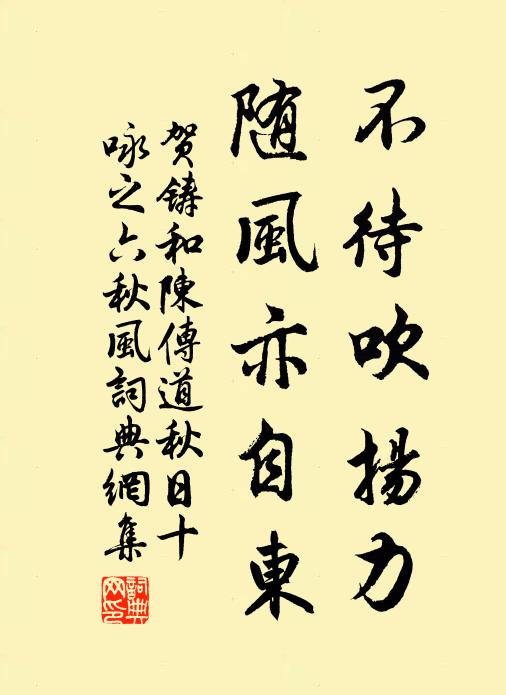 不待吹揚力
随風亦自東
賀鑄和陳傳道秋日十
咏之六秋風詞典網集
詞典网印